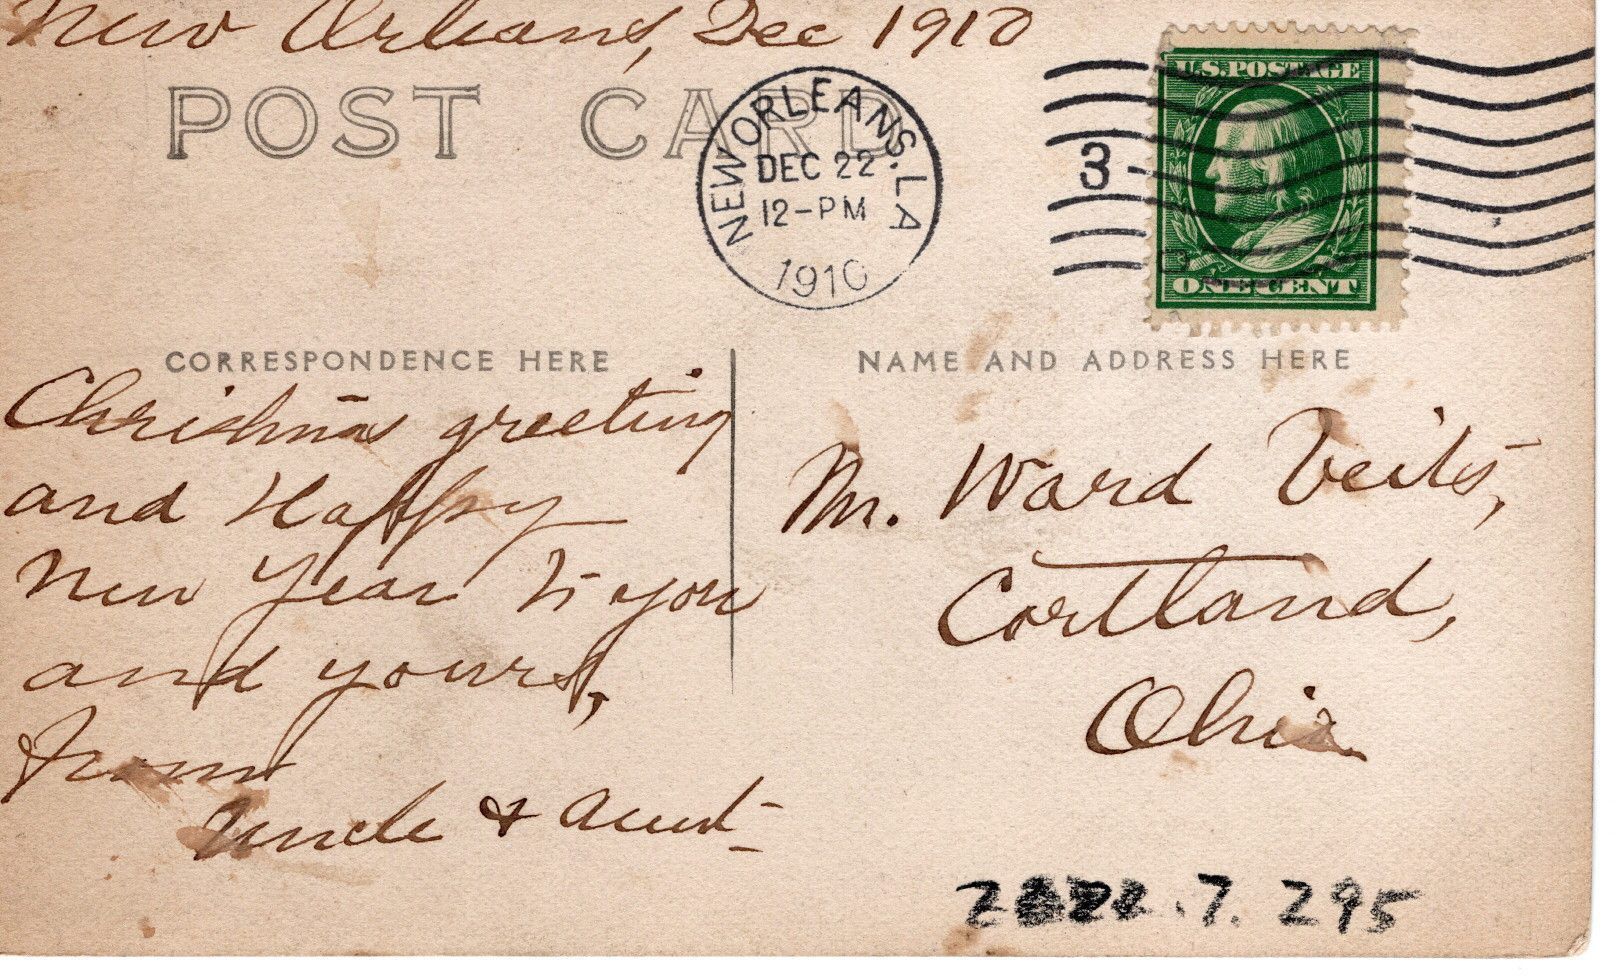 New Orleans, Dec 1910
POST CARD
NEW ORLEANS. LA
DEC 22
12-PM
1910
3
U.S. POSTAGE
ONE CENT
CORRESPONDENCE HERE
Christmas greeting
and Happy
New Year to you
and yours,
from
Uncle & Aunt
NAME AND ADDRESS HERE
Mr. Ward Veits,
Cortland,
Ohio
.7. 295